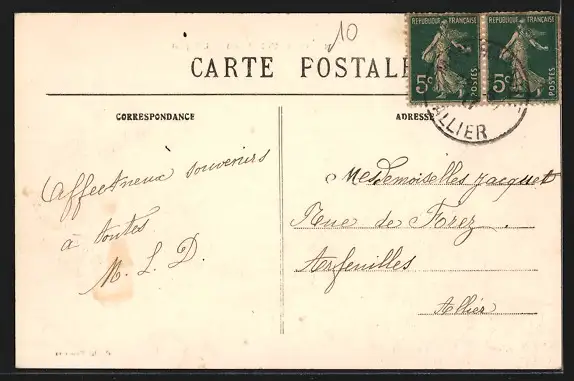 10
RÉPUBLIQUE FRANÇAISE RÉPUBLIQUE FRANÇAISE
5c POSTES 5c POSTES
CARTE POSTALE
ALLIER
CORRESPONDANCE
ADRESSE
Affectueux souvenirs
à toutes
M. L. D.
Mesdemoiselles Jacquet
Rue de Forez.
Arfeuilles
Allier